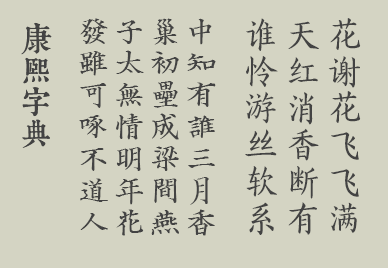 花谢花飞飞满
天红消香断有
谁怜游丝软系
中知有誰三月香
巢初壘成梁間燕
子太無情明年花
發雖可啄不道人
康熙字典